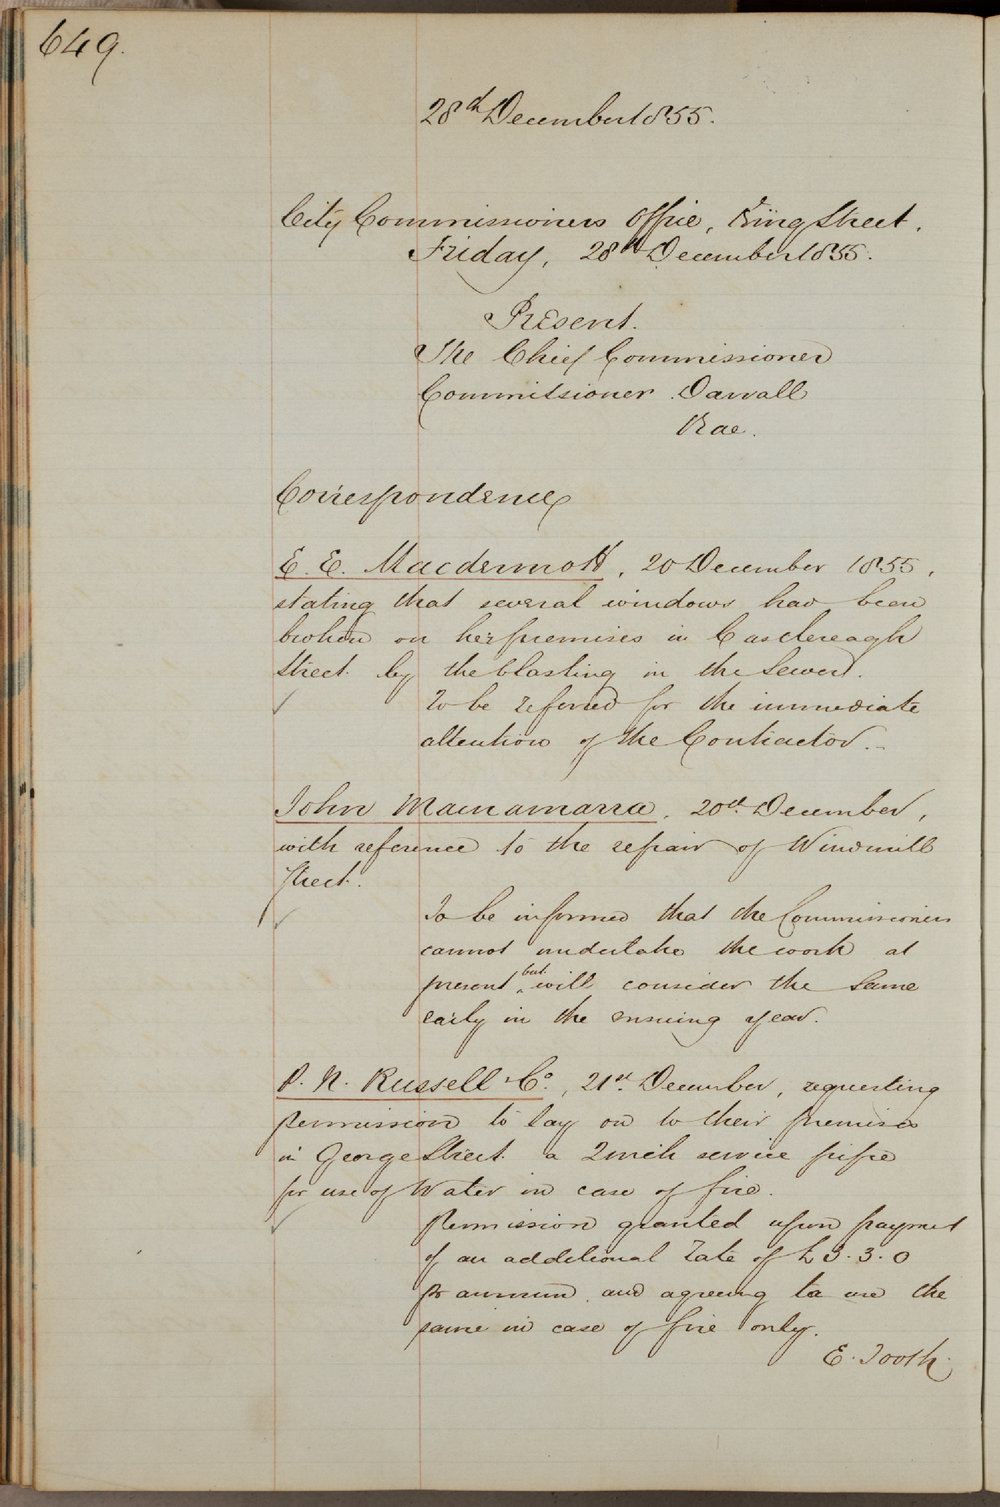 649.
28th December 1855.
City Commissioners Office, King Street,
Friday, 28th December 1855.
Present.
The Chief Commissioner
Commissioner Darvall
Rae.
Correspondence
E. E. Macdermott, 20 December 1855,
stating that several windows had been
broken on her premises in Castlereagh
Street by the blasting in the Sewer.
To be referred for the immediate
attention of the Contractor.
John Macnamarra, 20th December,
with reference to the repair of Windmill
Street.
To be informed that the Commissioners
cannot undertake the work at
present but will consider the same
early in the ensuing year.
P. N. Russell & Co., 21st December, requesting
permission to lay on to their premises
in George Street a 2 inch service pipe
for use of Water in case of fire.
Permission granted upon payment
of an additional rate of £3.3.0
pr annum and agreeing to use the
same in case of fire only.
E. Tooth